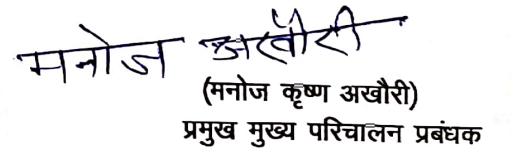 मनोज अखौरी
(मनोज कृष्ण अखौरी)
प्रमुख मुख्य परिचालन प्रबंधक